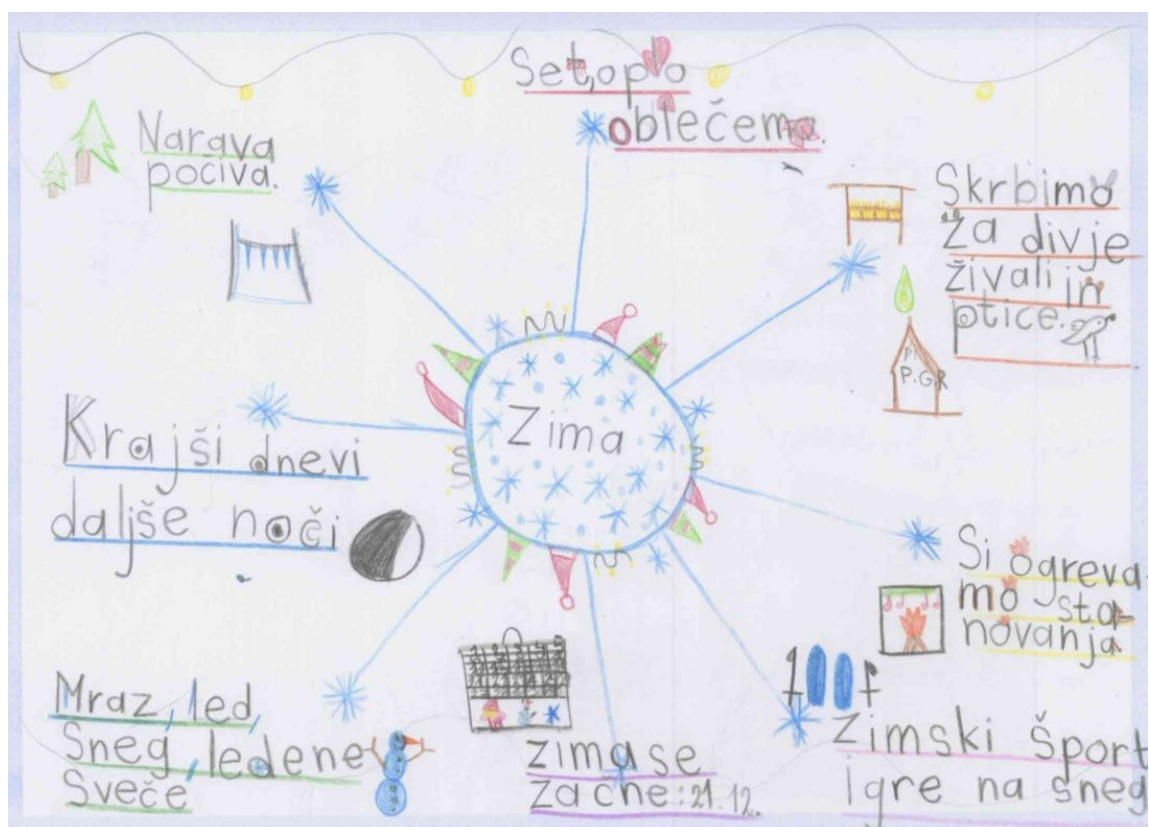 Se toplo
oblečemo.
Narava
počiva.
Skrbimo
za divje
živali in
ptice.
Zima
Krajši dnevi
daljše noči
Si ogreva
mo sta-
novanja
Mraz, led,
Sneg, ledene
Sveče
zima se
začne: 21.12.
Zimski šport
igre na sneg